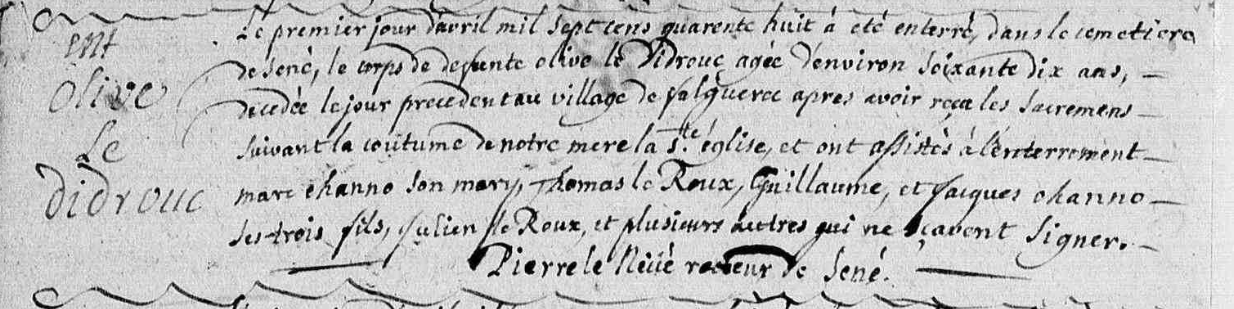 ent
Olive
Le
Didrouc
Le premier jour d'avril mil sept cens quarente huit à été enterré, dans le cemetiere
de Sené, le corps de defunte olive le Didrouc agée d'environ soixante dix ans,
decedée le jour precedent au village de falguerec apres avoir reçu les sacremens
suivant la coutume de notre mere la Ste église, et ont assistés à l'enterrement
marc ohanno son mary, Thomas le Roux, Guillaume, et Jacques ohanno
ses trois fils, Julien le Roux, et plusieurs autres qui ne sçavent signer.
Pierre le Neüe recteur de Sené.